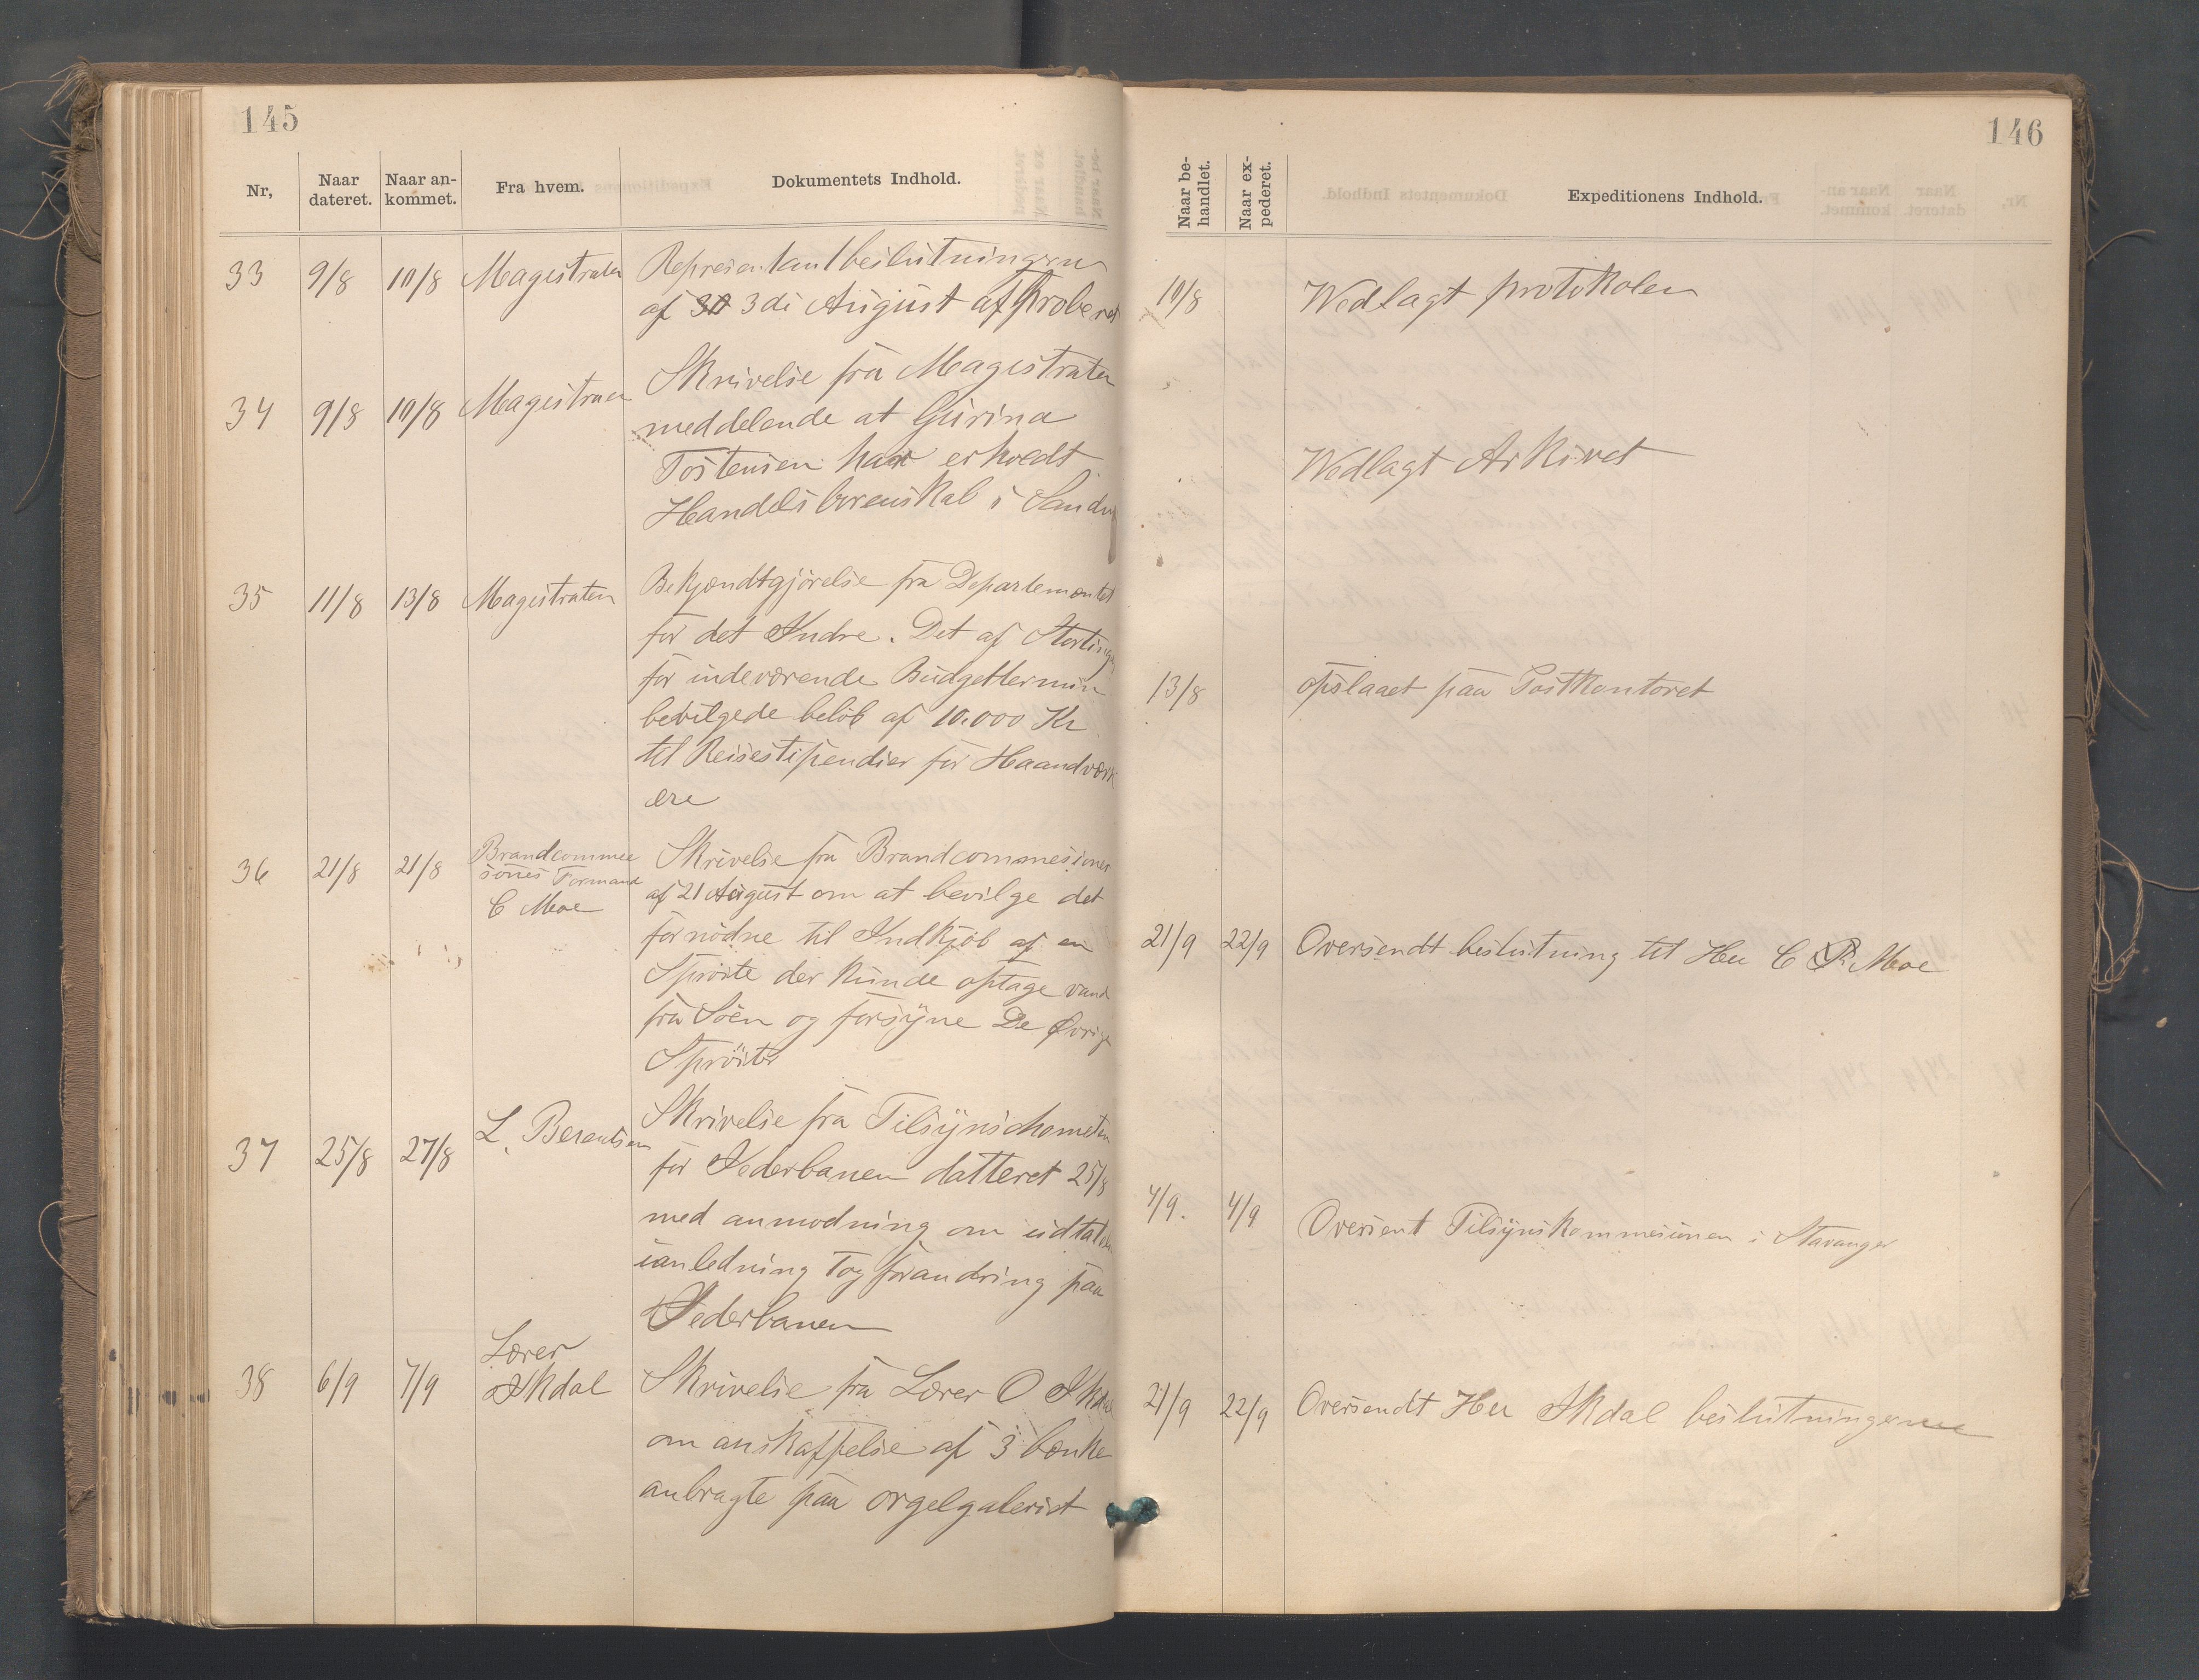 145
Nr,
Naar dateret.
Naar an-kommet.
Fra hvem.
Dokumentets Indhold.
33 9/8 10/8 Magistraten Representantbeslutningerne
af 3di August approberet
34 9/8 10/8 Magistraten Skrivelse fra Magistraten
meddelende at Gurina
Tostensen har erhvedt
Handelsborenskab i
35 11/8 13/8 Magistraten Bekjendtgjörelse fra Departementet
for det Indre. Det af Stortinget
for indeværende Budgettermin
bevilgede belöb af 10.000 Kr
til Reisestipendier for Haandværk
ere
36 21/8 21/8 Brandcommee
siones Formand
C Moe
Skrivelse fra Brandcommesionen
af 21 August om at bevilge det
fornödne til Indkjöb af en
Spröite der kunde optage vand
fra Söen og forsyne De Øvrige
Spröiter
37 25/8 27/8 L. Berentsen Skrivelse fra Tilsyns
for Jederbanen datteret 25/8
med anmodning om
ianledning Togforandring paa
Jederbanen
38 6/9 7/9 Lærer
Skdal
Skrivelse fra Lærer O
om anskaffelse af 3 bænke
anbragte paa orgelgaleriet
146
Naar be-handlet.
Naar ex-pederet.
Expeditionens Indhold.
10/8 Wedlagt protokolen
Wedlagt Arkivet
13/8 opslaaet paa Postkontoret
21/9 22/9 Oversendt beslutning til Herr C P. Moe
4/9. 4/9 Oversent Tilsynskommesionen i Stavanger
21/9 22/9 Oversendt Herr Skdal beslutningerne